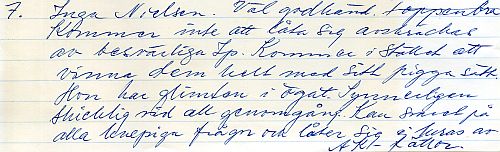 7. Inga Nielsen. Väl godkänd. Toppenbra
Kommer inte att låta sig avskräckas
av besvärliga Ip. Kommer i stället att
vinna dem helt med sitt pigga sätt
Hon har glimten i ögat. Synnerligen
skicklig vid all genomgång. Kan svara på
alla knepiga frågor och låter sig ej luras av
AKU-fällor.